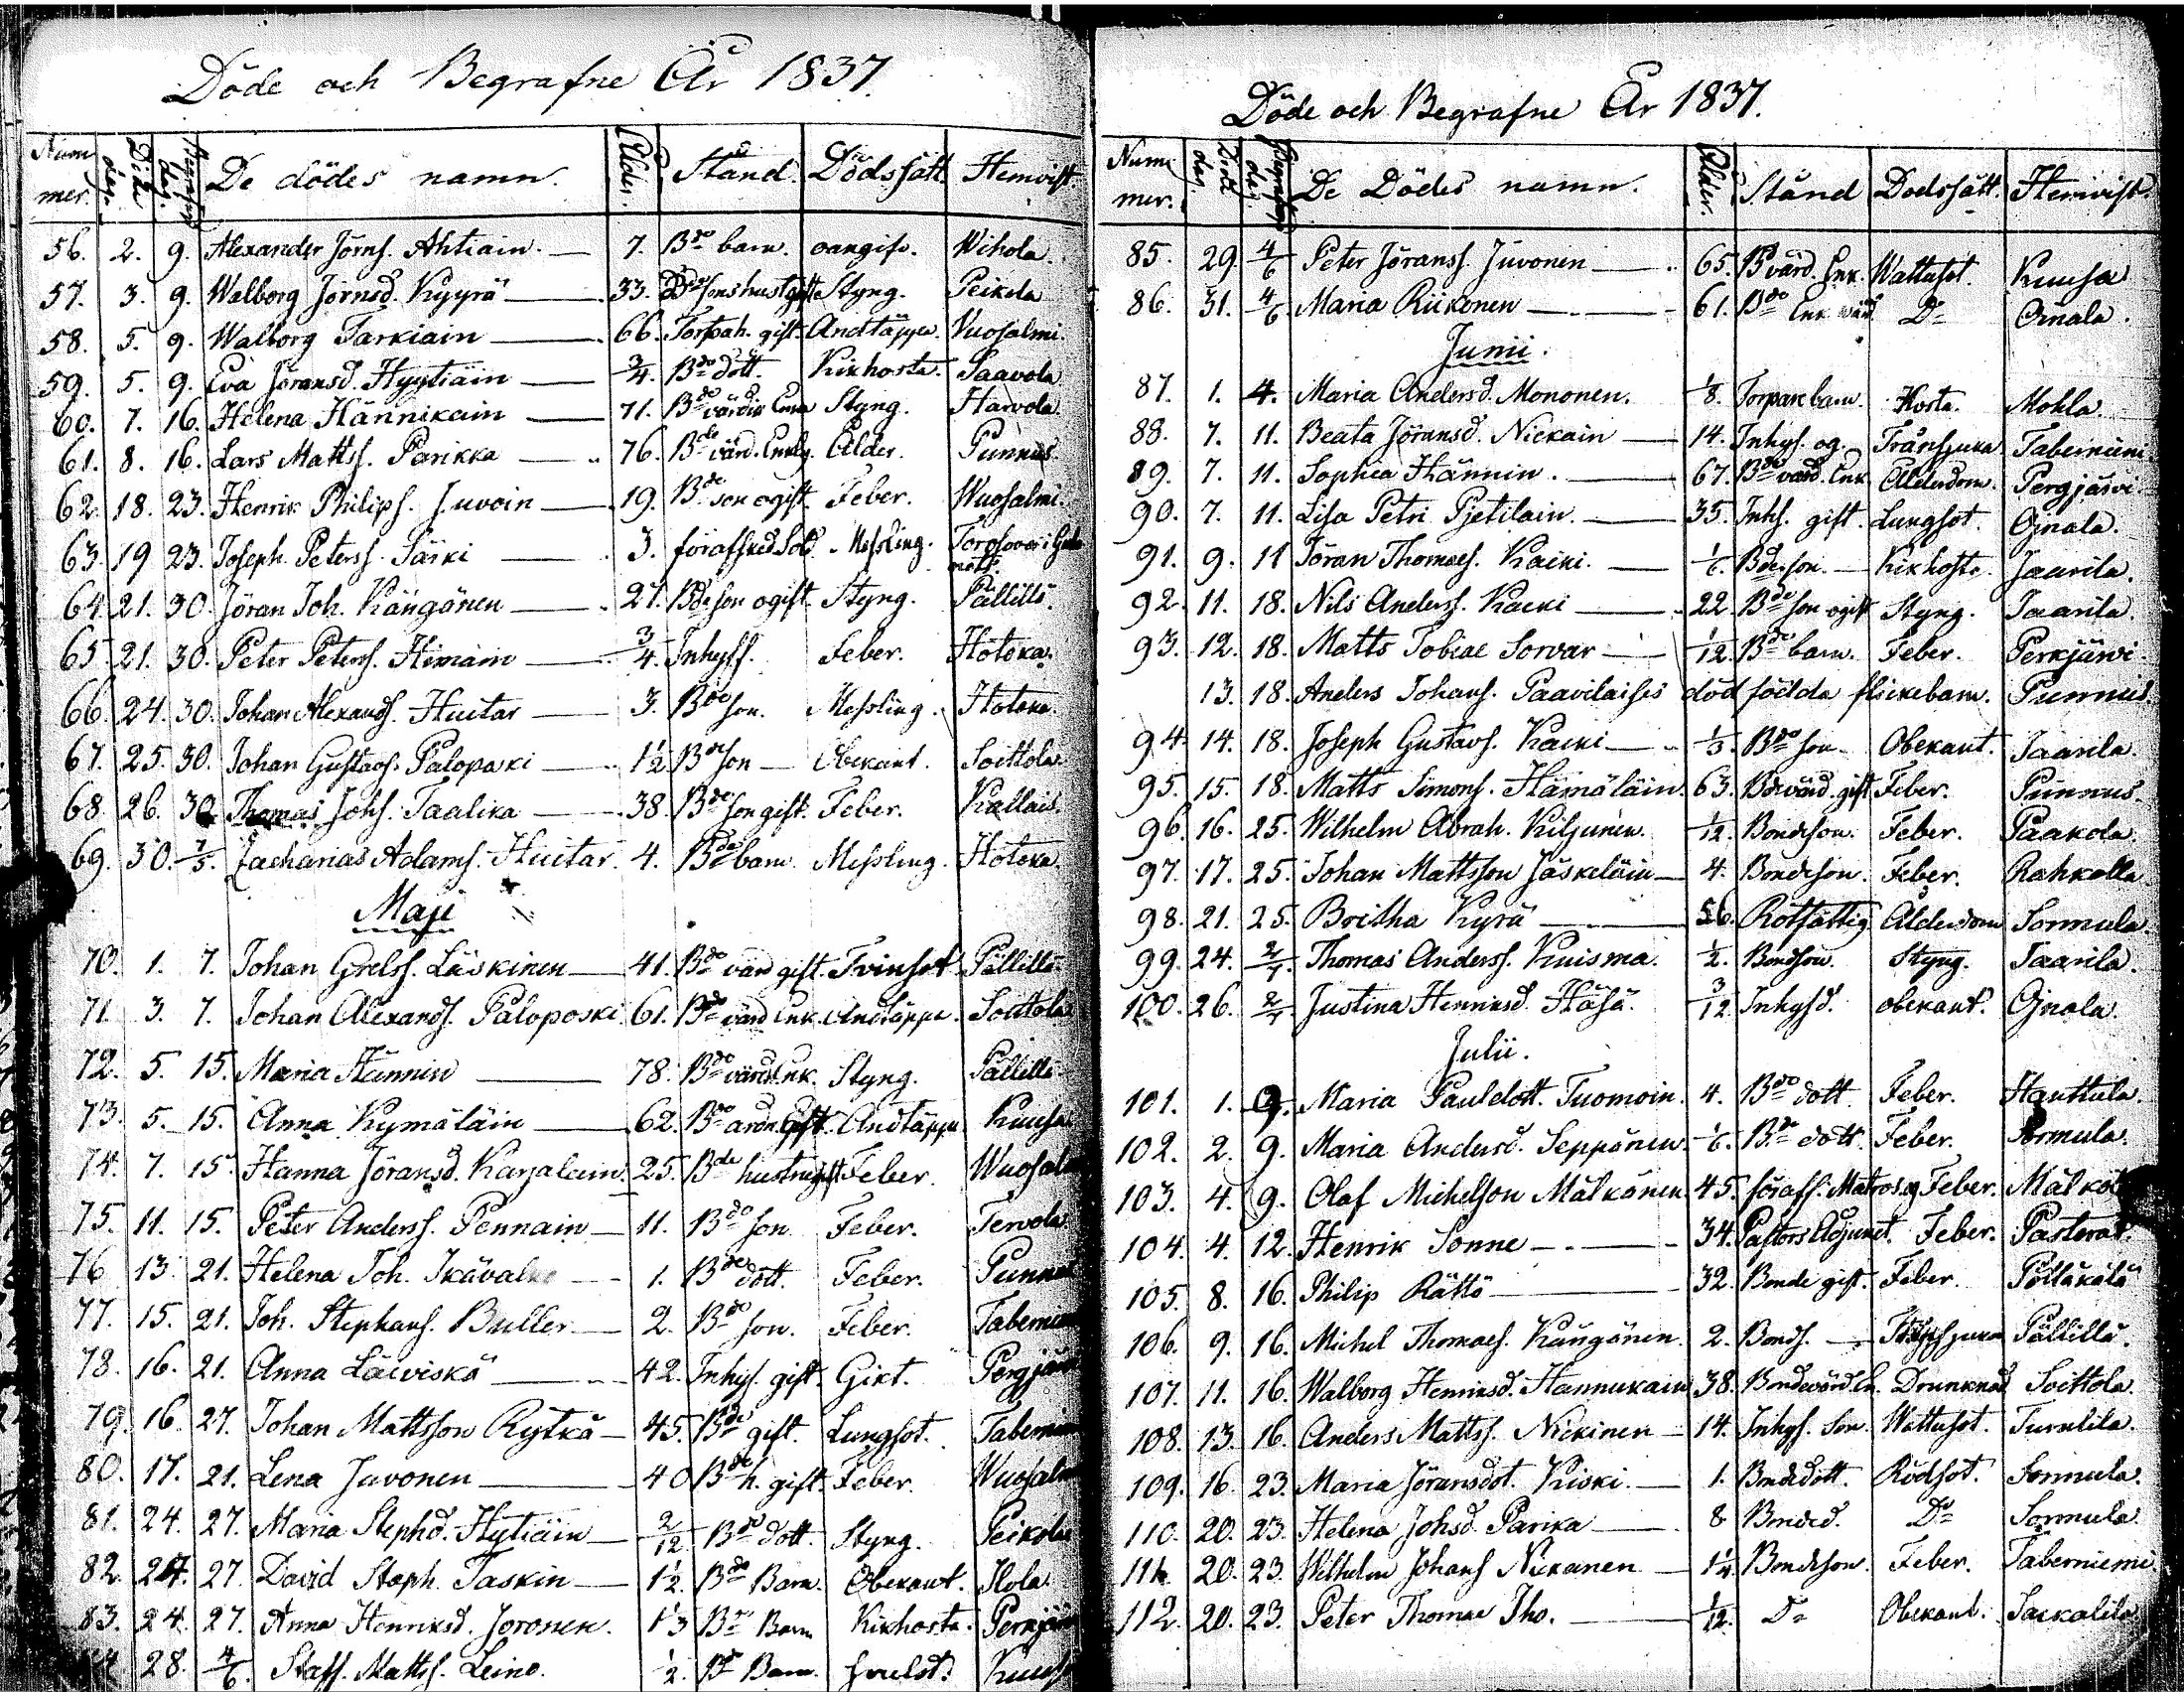 Döde och Begrafne År 1837.
Nummer. Döds dag. Begrafn. dag. De dödes namn. Ålder. Stånd. Dödssätt. Hemvist.
56. 2. 9. Alexander Jörns. Ahtiain. 7. Bde barn. oangifv. Wihola.
57. 3. 9. Walborg Jörnsd. Kyyrä 33. Styng. Peikola
58. 5. 9. Walborg Tarkiain 66. Torpah. gift. Andtäppa. Vuosalmi.
59. 5. 9. Eva Jöransd. Hyytiäin 3/4. Bde dott. Kikhosta. Paavola
60. 7. 16. Helena Hännikain 71. Bde värdin Enka Styng. Harvola.
61. 8. 16. Lars Mattss. Parikka 76. Bde värd. Enkl. Ålder. Punnus.
62. 18. 23. Henrik Philips. Juvoin 19. Bde son ogift. Feber. Wuosalmi.
63. 19 23. Joseph Peterss. Särki 3. förafsked Sold. Messling.
64. 21. 30. Jöran Joh. Kängänen 27. Bde son ogift. Styng. Pällillä.
65. 21. 30. Peter Peterss. Himäin 3/4. Inhyss. Feber. Hötökä.
66. 24. 30. Johan Alexands. Huitar 3. Bde son. Messling. Hotoka.
67. 25. 30. Johan Gustavs. Palopaski 1½ Bde son Obekant. Soittola
68. 26. 30 Thomas Johs. Taalika 38. Bde son gift. Feber. Kallais.
69. 30. 7/5. Zacharias Adams. Huitar. 4. Bde barn. Messling. Hotoka.
Maji
70. 1. 7. Johan Grelss. Läskinen 41. Bde värd gift. Tvinsot Pällillä.
71. 3. 7. Johan Alexands. Paloposki 61. Bde värd Enk. Andtäppa. Soittola
72. 5. 15. Maria Hännin 78. Bde värd. Enk. Styng. Pällillä
73. 5. 15. Anna Kymäläin 62. Bde gift. Andtäppa Kuusa
74. 7. 15. Hanna Jöransd. Karjalain. 25. Bde hustru gift Feber. Wuosal
75. 11. 15. Peter Anderss. Pennain 11. Bde son Feber. Tervola
76 13. 21. Helena Joh. Ikävalko 1. Bde dott. Feber. Punnus
77. 15. 21. Joh. Stephans. Buller 2. Bde son. Feber. Tabernie
78. 16. 21. Anna Läviskä 42. Inhys. gift. Gikt. Pergjärv
79. 16. 27. Johan Mattsson Rytkä 45. Bde gift. Lungsot. Tabernie
80. 17. 21. Lena Juvonen 40 Bde h. gift. Feber. Wuosalm
81. 24. 27. Maria Stephd. Hytiäin 2/12 Bde dott. Styng. Peikola
82. 24. 27. David Staph. Taskin 1½. Bde Barn. Obekant. Ilola
83. 24. 27. Anna Henriksd. Joronen. 1/3 Bde Barn Kikhosta. Perkjärv
28. 4/6. Staff. Mattss. Leino. ½. Bde Barn. Kuusa
Döde och Begrafne År 1837.
Nummer. Döds dag. Begrafn. dag. De Dödes namn. Ålder. Stånd Dödssätt. Hemvist.
85. 29. 4/6 Peter Jöranss. Juvonen 65. Bvärd. Enk. Wattusot. Kuusa
86. 31. 4/6 Maria Riikonen 61. Bde Enk. värd Do Oinala.
Junii.
87. 1. 4. Maria Andersd. Mononen. 1/8. Torpare barn. Hosta. Mohla.
88. 7. 11. Beata Jöransd. Nickain 14. Inhys. og. Fransjuka Taberniemi
89. 7. 11. Sophia Hännin. 67. Bde värd. Enk Ålderdom. Pergjärvi
90. 7. 11. Lisa Petri Pjetilain. 35. Inhs. gift. Lungsot. Ojnala.
91. 9. 11 Jöran Thomaes. Kaiki. 1/6. Bde son. Kikhosta. Jaarila.
92. 11. 18. Nils Anderss. Kaeki 22. Bde son ogift Styng. Jaarila.
93. 12. 18. Matts Tobiae Sorvar 1/12. Bde barn. Feber. Perkjärvi.
13. 18. Anders Johans. Paavilaises död födda flickebarn. Punnus.
94. 14. 18. Joseph Gustavs. Kaeki 1/3. Bde son Obekant. Jaarila.
95. 15. 18. Matts Simons. Hämäläin. 63. Bde värd. gift Feber. Punnus.
96. 16. 25. Wilhelm Abrah. Kiljunen. 1/12. Bondeson. Feber. Paakola.
97. 17. 25. Johan Mattsson Jäskeläin 4. Bondeson. Feber. Rahkolla
98. 21. 25. Britha Kyrä 56. Rotfattig Ålderdom Sormula
99. 24. 2/7. Thomas Anderss. Kuisma. ½. Bondson. Styng. Jaarila.
100. 26. 2/7 Justina Henriksd. Häsä. 3/12 Inhysd. obekant. Ojnala.
Julii.
101. 1. 9. Maria Pauldott. Tuomoin. 4. Bde dott. Feber. Hauttula.
102. 2. 9. Maria Andersd. Seppänen. 1/6. Bde dott. Feber. Sormula.
103. 4. 9. Olaf Michelson Mälkönen 45. förafs. Matros g Feber. Mälköl
104. 4. 12. Henrik Sonne 34. Pastors Adjunct. Feber. Pastorat.
105. 8. 16. Philip Rättö 32. Bonde gift. Feber. Pölläkälä
106. 9. 16. Michel Thomaes. Kängänen. 2. Bonds. Pällillä.
107. 11. 16. Walborg Henriksd. Hannukain 38. Bondevärd En. Drunknad Soittola.
108. 13. 16. Anders Mattss. Nickinen 14. Inhys. Son. Wattusot. Turulila.
109. 16. 23. Maria Jöransdot. Kiski. 1. Bondedott. Rödsot. Sormula.
110. 20. 23. Helena Johsd. Parika 8 Bonded. Do Sormula
111. 20. 23. Wilhelm Johans Nikanen 1¼. Bondeson. Feber. Taberniemi.
112. 20. 23. Peter Thomae Iho. 1/12. Do Obekant. Jaekalila